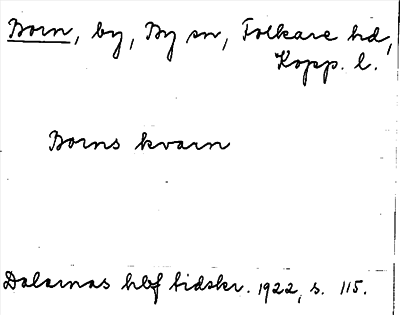 Born, by, By sn, Folkare hd,
Kopp. l.
Borns kvarn
Dalarnas hbf tidskr. 1922, s. 115.